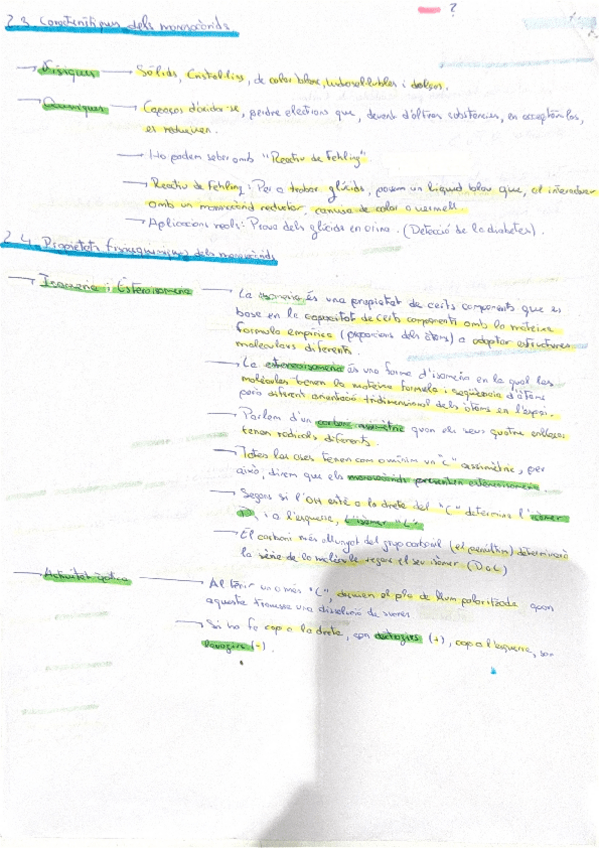 ?
2.3 Característiques dels monosacàrids
→ Físiques → Sòlids, Cristal·lins, de color blanc, hidrosolubles i dolços.
→ Químiques → Capaços d'oxidar-se, perdre electrons que, davant d'altres substàncies, en acceptar-los,
es redueixen.
→ Ho podem saber amb "Reactiu de Fehling".
→ Reactiu de Fehling: Per a trobar glúcids, posem un líquid blau que, al interaduer
amb un monosacàrid reductor, canvia de color a vermell.
→ Aplicacions reals: Prova dels glúcids en orina. (Detecció de la diabetes).
2.4 Propietats fisicoquímiques dels monosacàrids
→ Isomeria i Estereoisomeria → La isomeria és una propietat de certs components que es
basa en la capacitat de certs components amb la mateixa
fórmula empírica (proporcions dels àtoms) a adoptar estructures
moleculars diferents.
→ La estereoisomeria és una forma d'isomeria en la qual les
molècules tenen la mateixa fórmula i seqüència d'àtoms
però diferent orientació tridimensional dels àtoms en l'espai.
→ Parlem d'un carboni asimètric quan els seus quatre enllaços
tenen radicals diferents.
→ Totes les oses tenen com a mínim un "C" assimètric, per
això, direm que els monosacàrids presenten estereoisomeria.
→ Segons si l'OH està a la dreta del "C" determina l'isòmer
D, i a l'esquerra, l'isòmer "L"
→ El carboni més allunyat del grup carbonil (el penúltim) determinarà
la sèrie de la molècula segons el seu isòmer (D o L)
→ Activitat òptica → Al tenir un o més "C", desvien el pla de llum polaritzada quan
aquesta travessa una dissolució de sucres
→ Si ho fa cap a la dreta, són dextrògirs (+), cap a l'esquerra, són
levògirs (-).